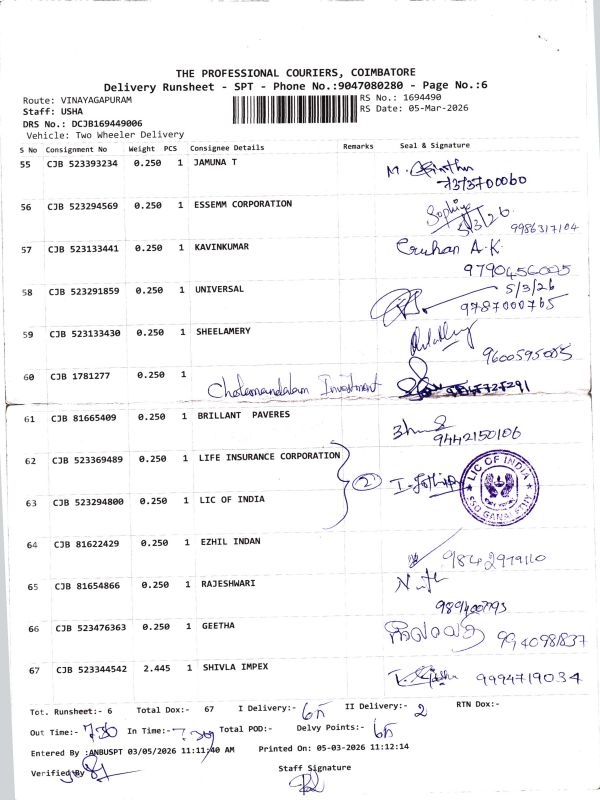 THE PROFESSIONAL COURIERS, COIMBATORE
Delivery Runsheet - SPT - Phone No.:9047080280 - Page No.:6
Route: VINAYAGAPURAM RS No.: 1694490
Staff: USHA RS Date: 05-Mar-2026
DRS No.: DCJB169449006
Vehicle: Two Wheeler Delivery
S No Consignment No Weight PCS Consignee Details Remarks Seal & Signature
55 CJB 523393234 0.250 1 JAMUNA T M.
7373700060
56 CJB 523294569 0.250 1 ESSEMM CORPORATION Sophiya
5/3/26. 9986317104
57 CJB 523133441 0.250 1 KAVINKUMAR A.K
9790456005
58 CJB 523291859 0.250 1 UNIVERSAL 5/3/26
9787000765
59 CJB 523133430 0.250 1 SHEELAMERY
9600595005
60 CJB 1781277 0.250 1 Cholamandalam Investment
61 CJB 81665409 0.250 1 BRILLANT PAVERES
9442150106
62 CJB 523369489 0.250 1 LIFE INSURANCE CORPORATION
2 LIC OF INDIA
63 CJB 523294800 0.250 1 LIC OF INDIA
64 CJB 81622429 0.250 1 EZHIL INDAN
9842979110
65 CJB 81654866 0.250 1 RAJESHWARI
66 CJB 523476363 0.250 1 GEETHA 9940981837
67 CJB 523344542 2.445 1 SHIVLA IMPEX 9994719034
Tot. Runsheet:- 6 Total Dox:- 67 I Delivery:- 65 II Delivery:- 2 RTN Dox:-
Out Time:- 7.30 In Time:- Total POD:- Delvy Points:- 65
Entered By :ANBUSPT 03/05/2026 11:11:40 AM Printed On: 05-03-2026 11:12:14
Verified By Staff Signature